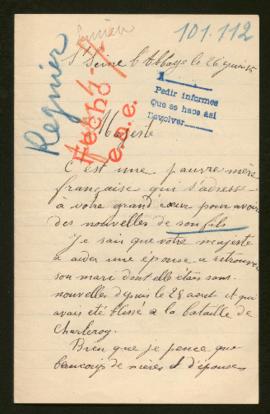 Regnier
101.112
St Seine l'Abbaye le 26
Pedir informes
Que se hace asi
Devolver
Hecho
Majesté
C'est une pauvre mère
française qui s'adresse
à votre grand cœur pour avoir
des nouvelles de son fils
Je sais que votre majesté
a aider une épouse a retrouver
son mari dont elle était sans
nouvelles depuis le 28 aout et qui
avait été blessé a la bataille de
Charleroy.
Bien que je pence que
beaucoup de mères et d'épouses